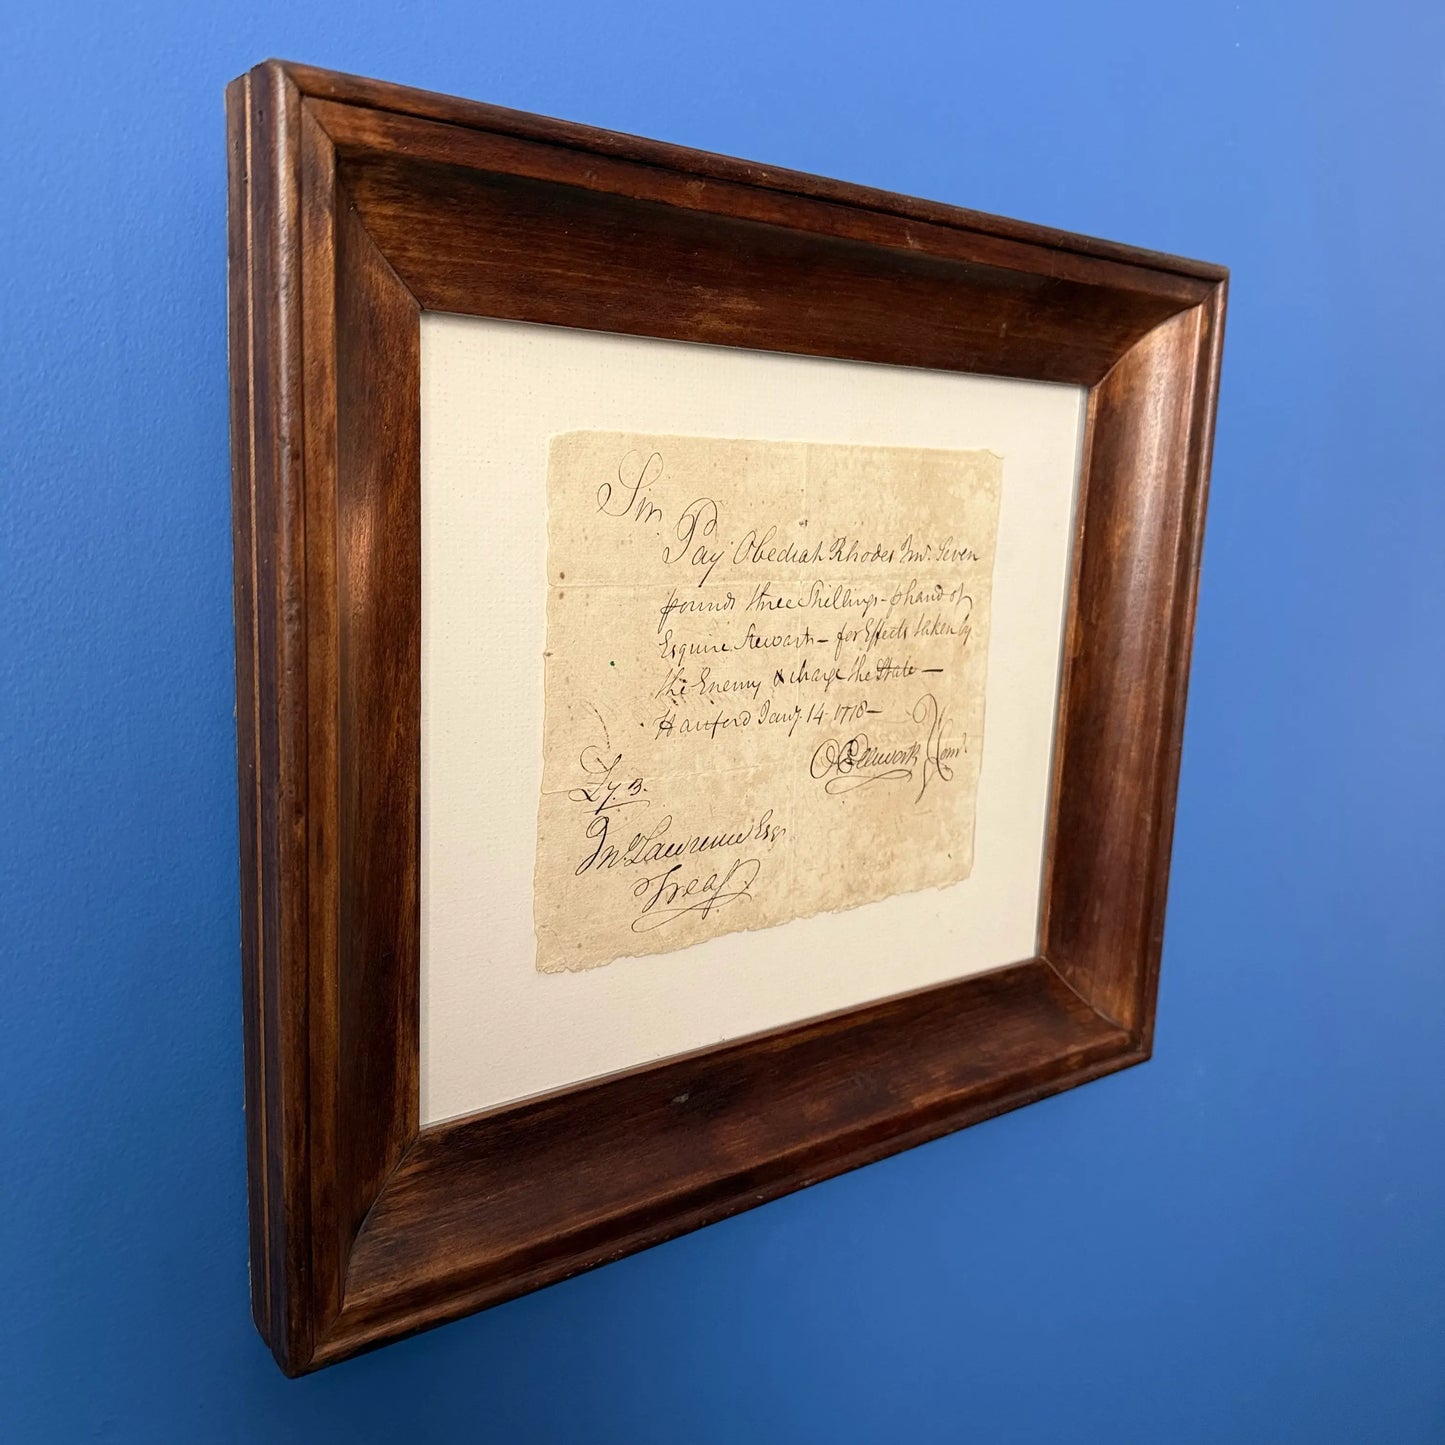 Sir
Pay Obediah Rhodes Junr. Seven
pounds three Shillings - p hand of
Esquire Stewart - for Effects taken by
the Enemy & charge the State -
Hartford Jany. 14 1778 -
O Ellsworth Comt
£7.3.
Jno. Lawrence Esqr
Treasr.